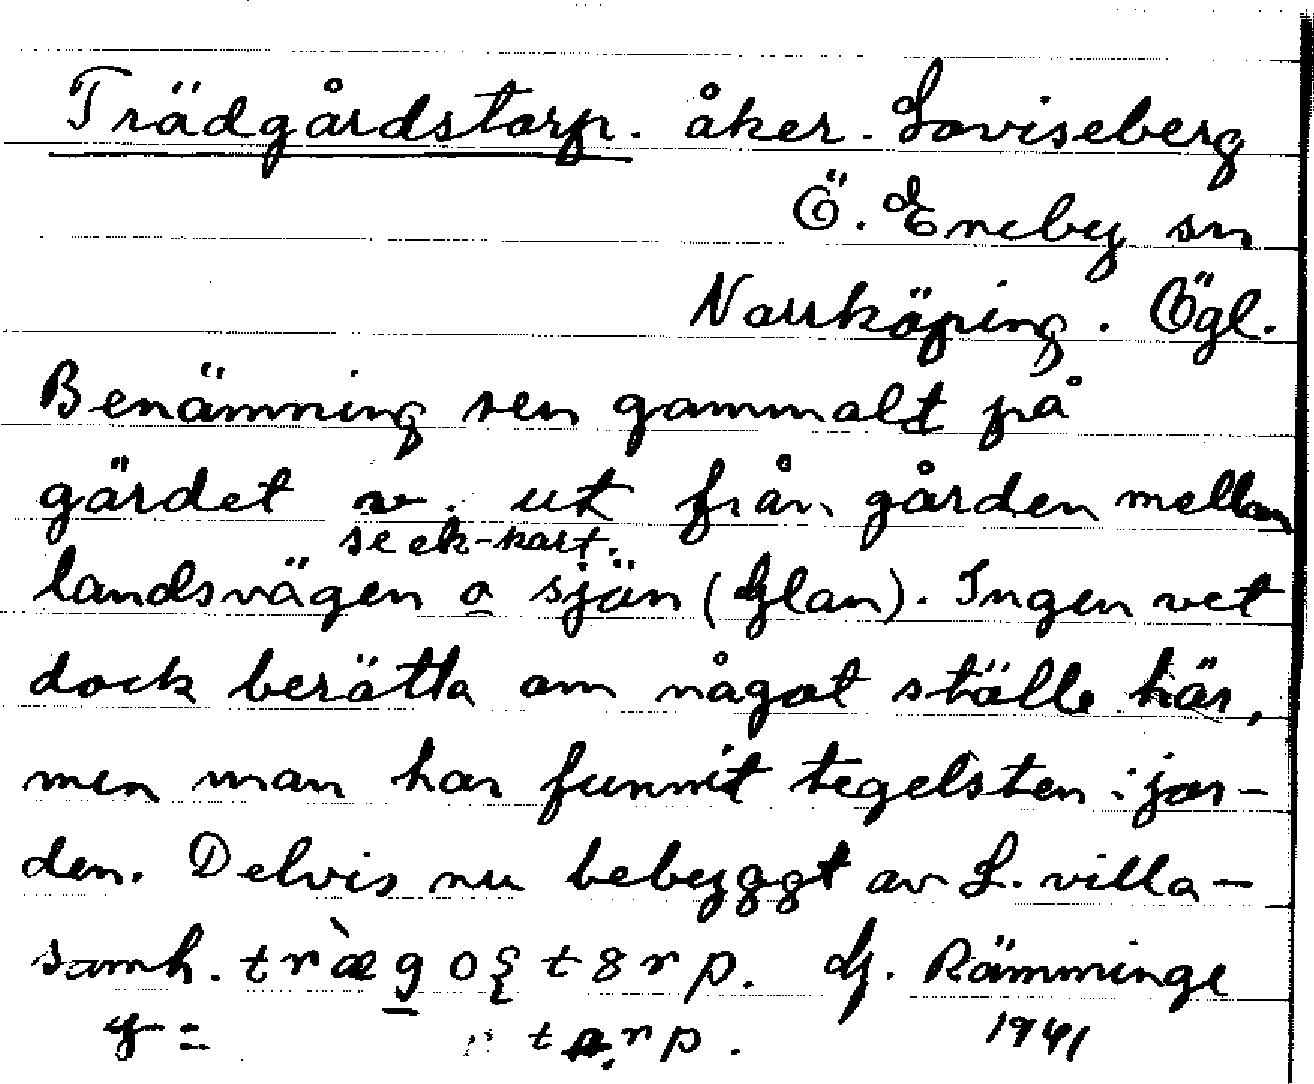 Trädgårdstorp. åker. Loviseberg
Ö. Eneby sn
Norrköping. Ögl.
Benämning sen gammalt på
gärdet v. ut från gården mellan
se ek-kart.
landsvägen o sjön (Glan). Ingen vet
dock berätta om något ställe här,
men man har funnit tegelsten i jor-
den. Delvis nu bebyggt av L. villa-
samh. træ̀goʂtɞrp. G. Rämminge
torp. 1941